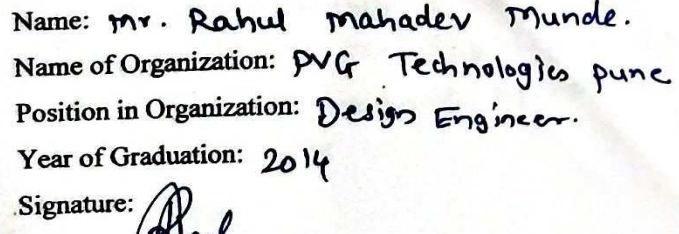 Name: Mr. Rahul Mahadev Munde.
Name of Organization: PVG Technologies pune
Position in Organization: Design Engineer.
Year of Graduation: 2014
Signature: